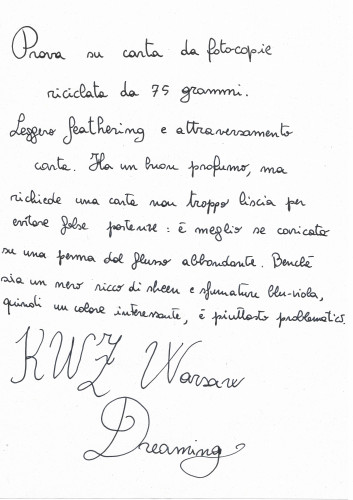 Prova su carta da fotocopie
riciclata da 75 grammi.
Leggero feathering e attraversamento
carta. Ha un buon profumo, ma
richiede una carta non troppo liscia per
evitare false partenze: è meglio se caricato
su una penna dal flusso abbondante. Benché
sia un nero ricco di sheen e sfumature blu-viola,
quindi un colore interessante, è piuttosto problematico.
KWZ Warsaw
Dreaming